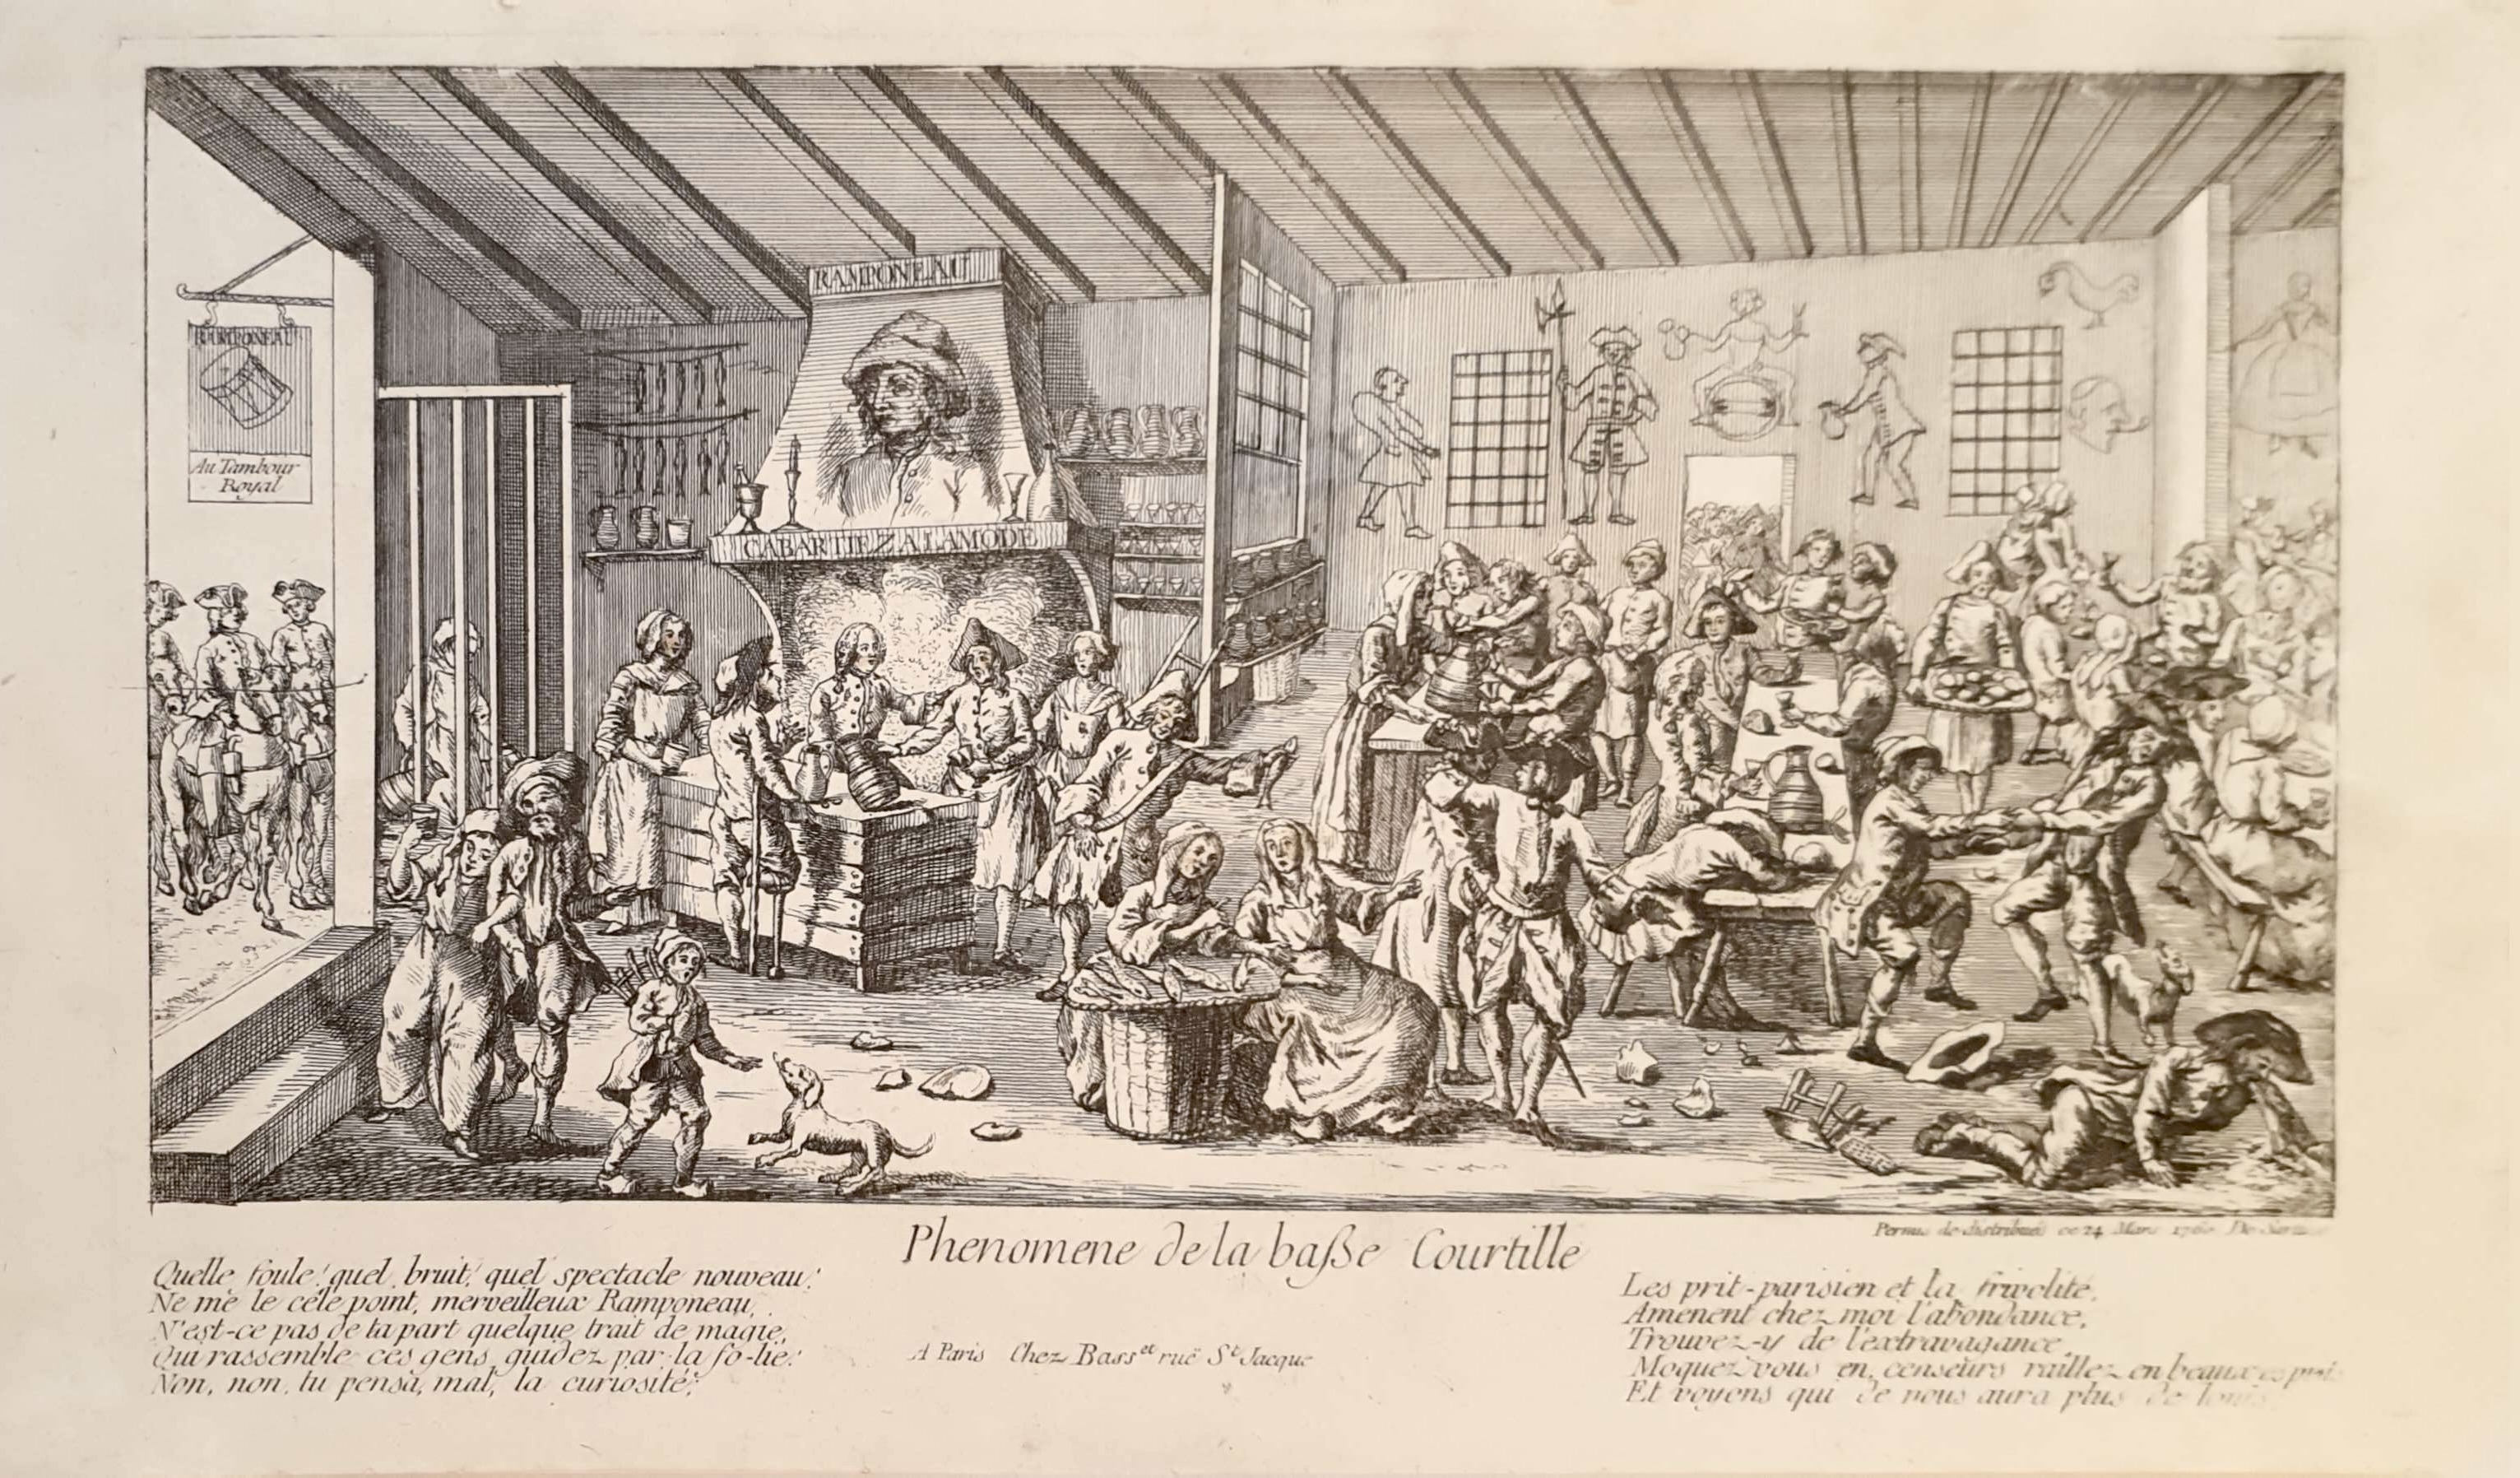 RAMPONEAU
Au Tambour
Royal
RAMPONEAU
CABARTIEZ A LAMODE
Permis de distribuer ce 24 Mars 1760
Phenomene de la baße Courtille
Quelle foule! quel bruit! quel spectacle nouveau!
Ne me le céle point, merveilleux Ramponeau,
N'est-ce pas de ta part quelque trait de magie,
Qui rassemble ces gens guidez par la fo-lie!
Non, non, tu pensa, mal, la curiosité;
A Paris Chez Basset ruë St Jacque
Les prit-parisien et la frivolité,
Amenent chez moi l'abondance,
Trouvez-y de l'extravagance,
Moquez vous en, censeurs raillez en beaux
Et voyons qui de nous aura plus de louis